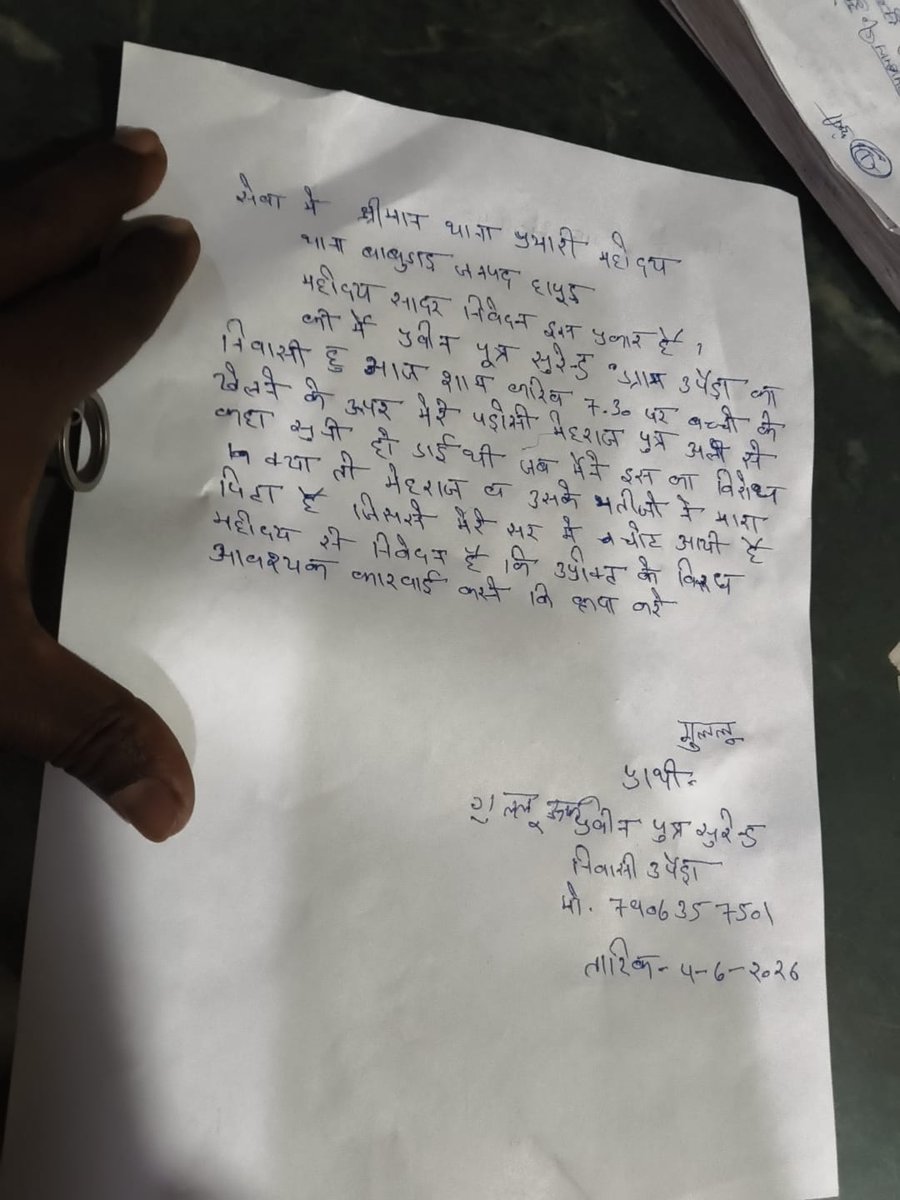 सेवा मे श्रीमान थाना प्रभारी महोदय
थाना बाबुगढ़ जनपद हापुड़
महोदय सादर निवेदन इस प्रकार है,
की मैं प्रवीन पूत्र सुरेन्द्र ग्राम उपैड़ा का
निवासी हु आज शाम करिब 7.30 पर बच्चो के
खेलने के ऊपर मेरे पड़ोसी मेहराज पुत्र अली से
कहा सुनी हो गई थी जब मैंने इस का विरोध
क्या तो मेहराज व उसके भतीजो ने मारा
पिटा है जिससे मेरे सर मे चोट आयी है
महोदय से निवेदन है कि उप्रोक्त के विरूध
आवश्यक कारवाई करने कि कृपा करे
गुल्लू
प्रार्थी-
गुल्लू उर्फ प्रवीन पुत्र सुरेन्द्र
निवासी उपैड़ा
मो. 7906357501
तारिक- ५-6-२०२६